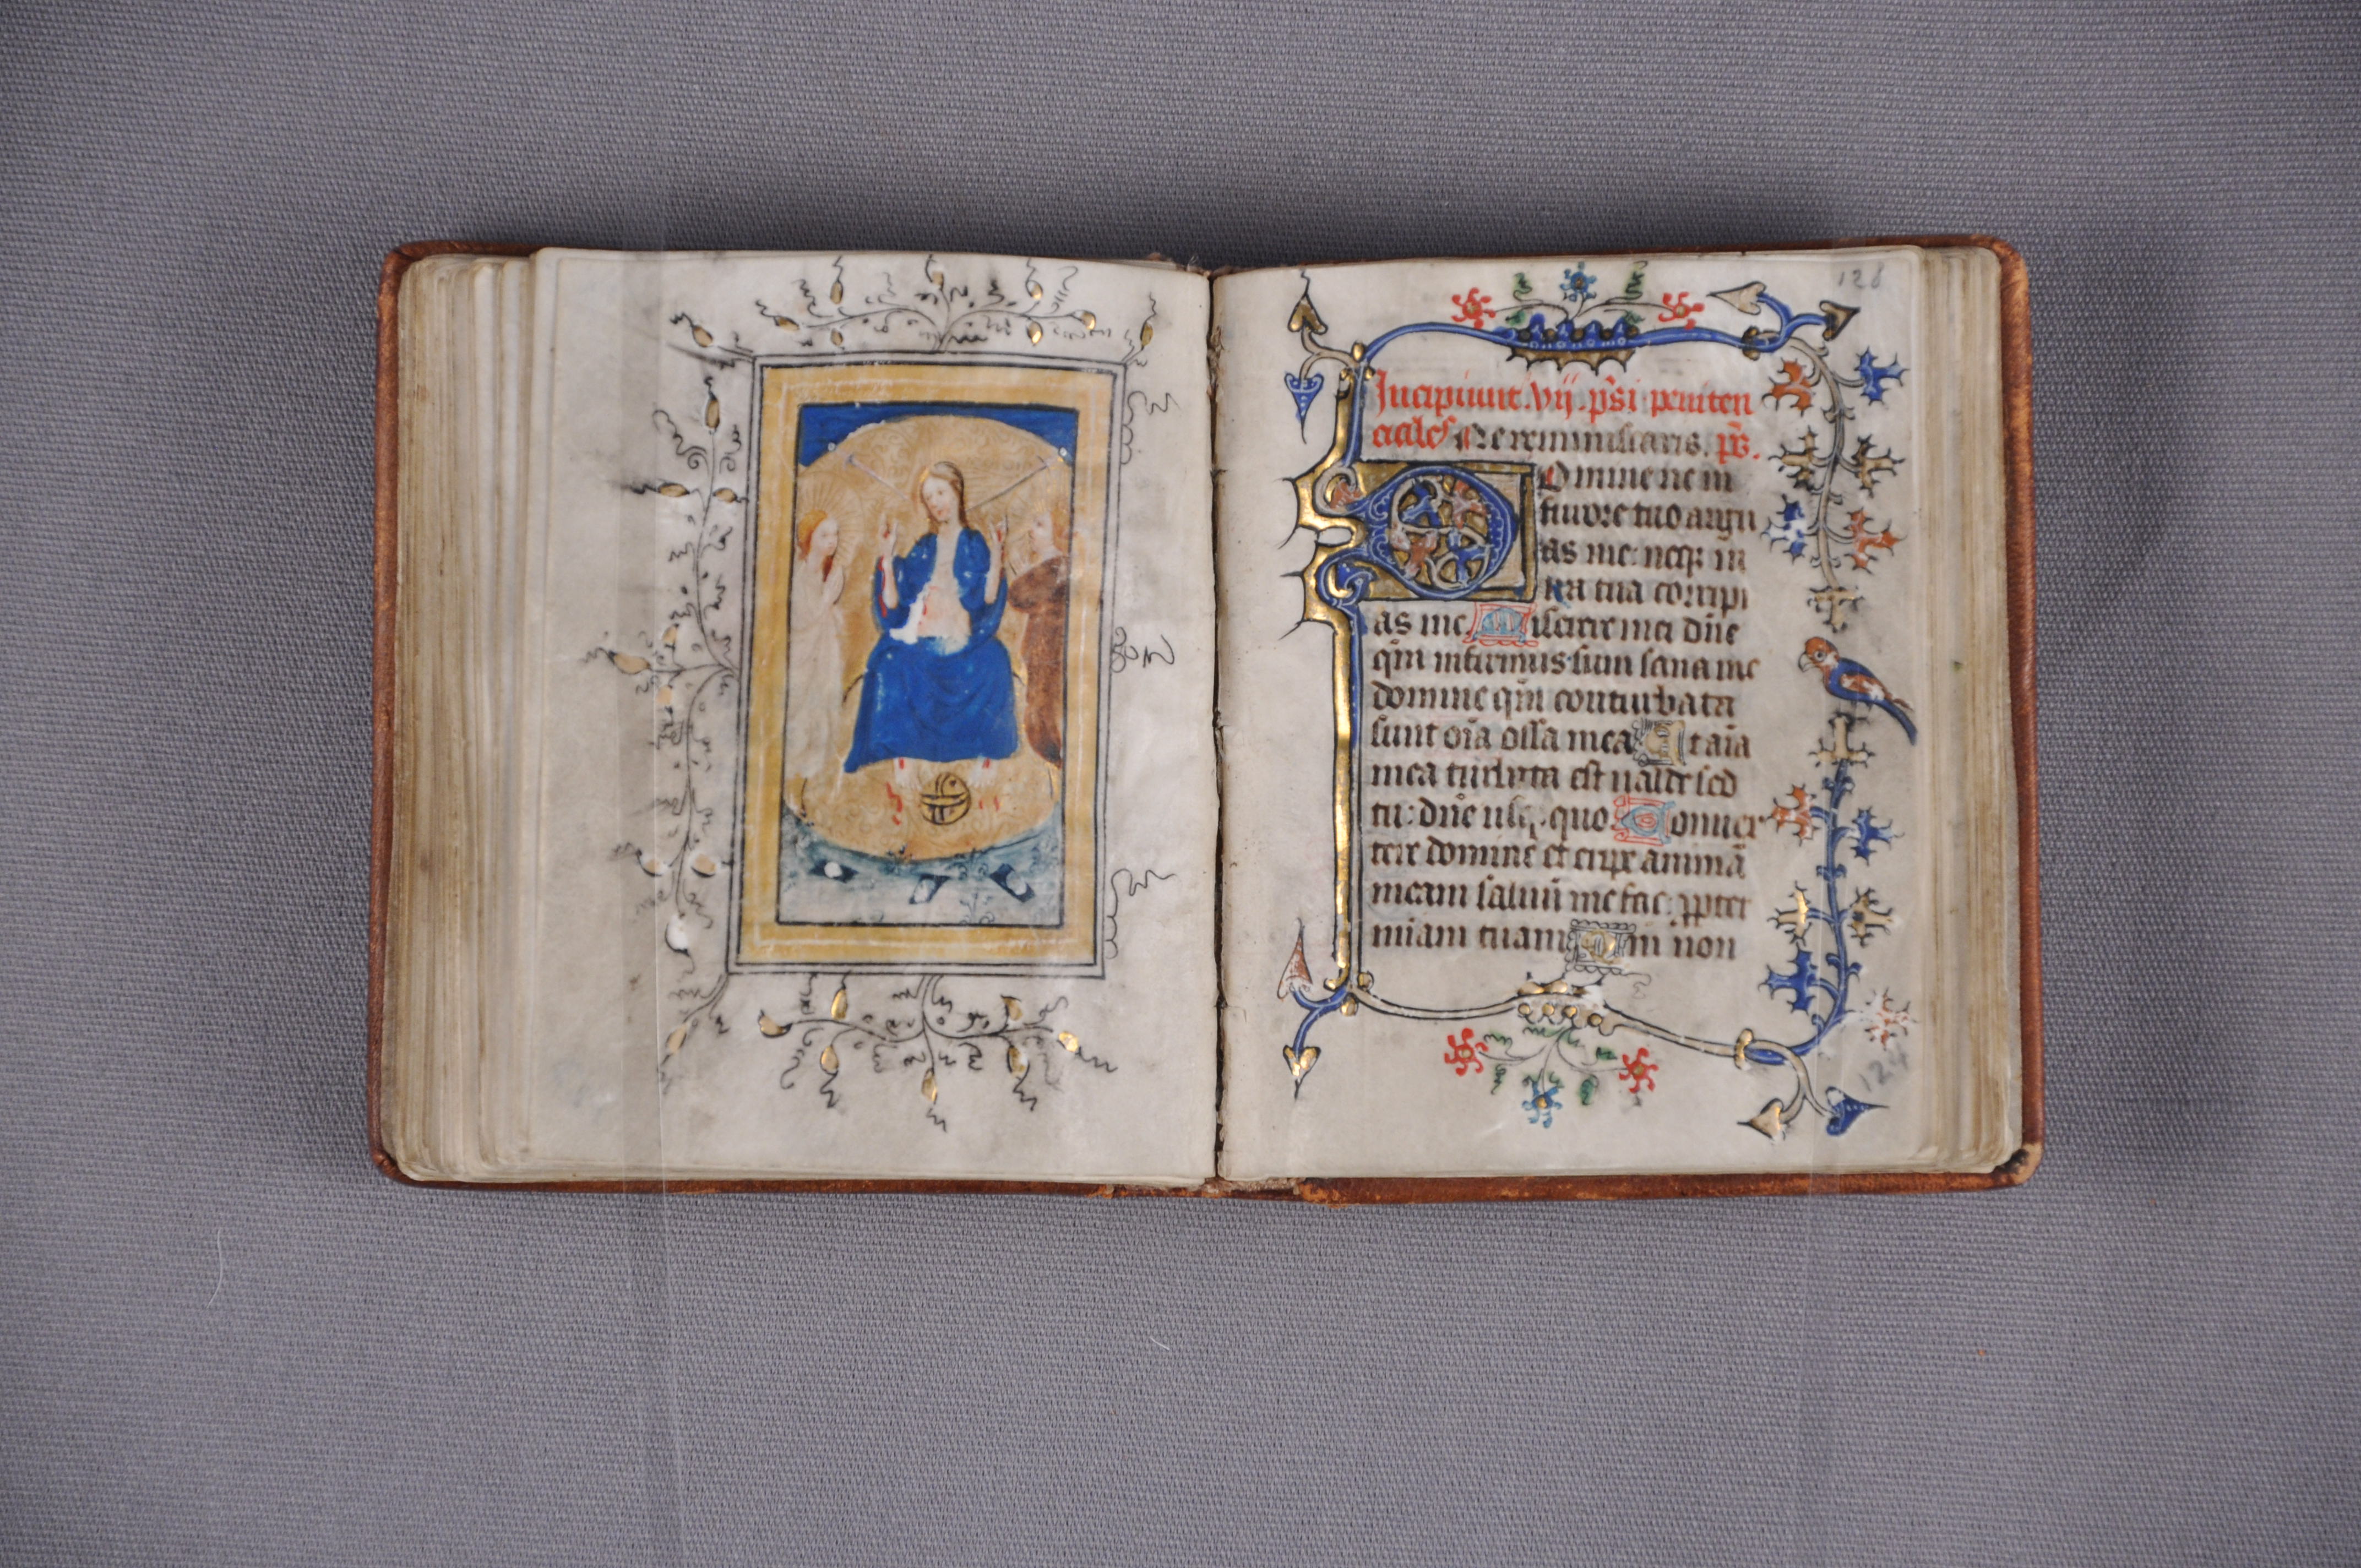 128
Incipiunt .vij. ps̄i peniten
ciales Ne reminiscaris. ps̄.
Domine ne in
furore tuo argu
as me: neqꝫ in
ira tua corripi
as me Miserere mei dn̄e
qm̄ infirmus sum sana me
domine qm̄ conturbata
sunt oīa ossa mea Et aīa
mea turbata est ualde sed
tu: dn̄e usqꝫ quo Conuer
tere domine et eripe animā
meam saluū me fac: ꝓpter
mīam tuam in non
124